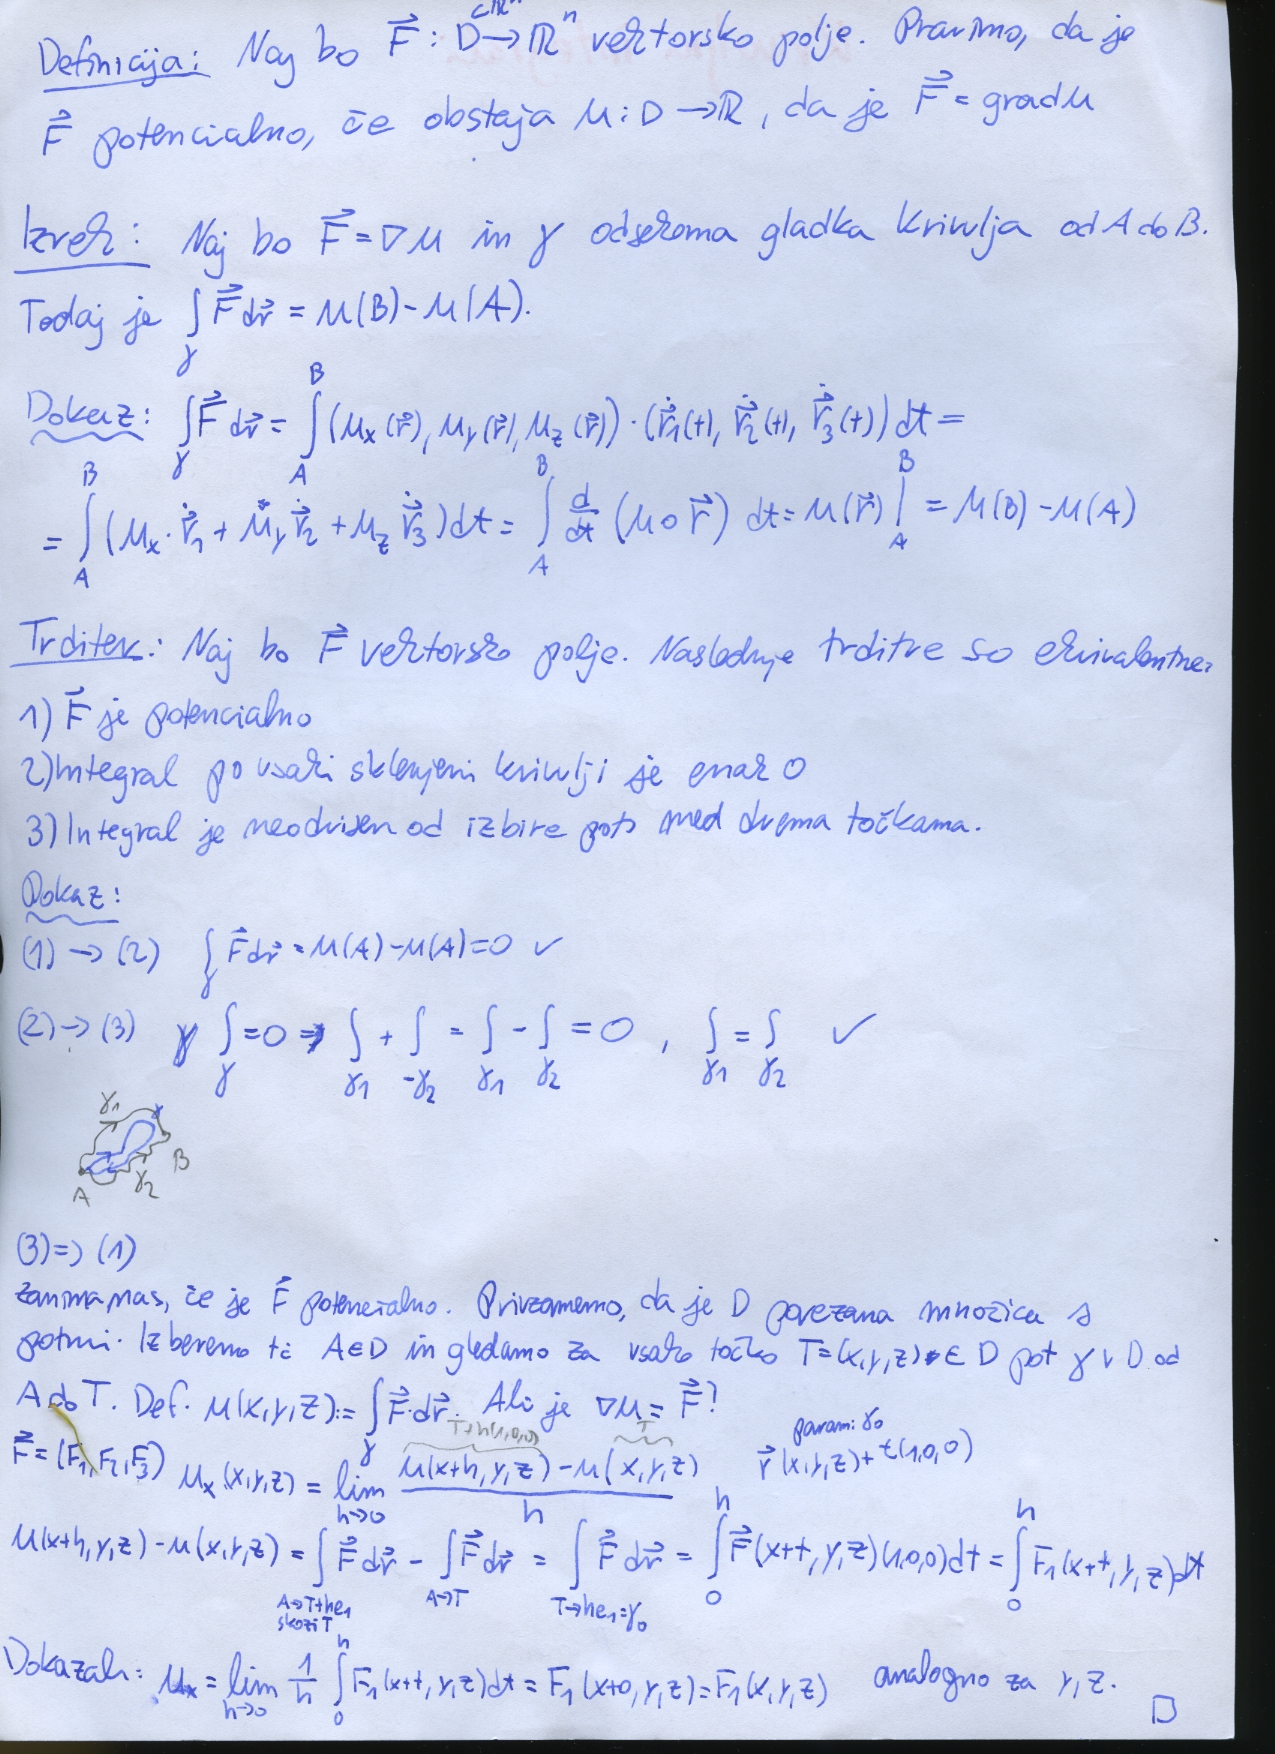 Definicija: Naj bo F⃗ : D^{⊂ℝⁿ} → ℝⁿ vektorsko polje. Pravimo, da je
F⃗ potencialno, če obstaja u : D → ℝ, da je F⃗ = grad u
Izrek: Naj bo F⃗ = ∇u in γ odsekoma gladka krivulja od A do B.
Tedaj je ∫_γ F⃗ dr⃗ = u(B) - u(A).
Dokaz: ∫_γ F⃗ dr⃗ = ∫_A^B (u_x(r⃗), u_y(r⃗), u_z(r⃗)) · (ṙ⃗_1(t), ṙ⃗_2(t), ṙ⃗_3(t)) dt =
= ∫_A^B (u_x · ṙ⃗_1 + u_y ṙ⃗_2 + u_z ṙ⃗_3) dt = ∫_A^B d/dt (u ∘ r⃗) dt = u(r⃗) |_A^B = u(B) - u(A)
Trditev: Naj bo F⃗ vektorsko polje. Naslednje trditve so ekvivalentne:
1) F⃗ je potencialno
2) Integral po vsaki sklenjeni krivulji je enak 0
3) Integral je neodvisen od izbire poti med dvema točkama.
Dokaz:
(1) → (2) ∫_γ F⃗ dr⃗ = u(A) - u(A) = 0 ✓
(2) → (3) ∫_γ = 0 ⇒ ∫_γ1 + ∫_-γ2 = ∫_γ1 - ∫_γ2 = 0 , ∫_γ1 = ∫_γ2 ✓
γ1
B
A γ2
(3) ⇒ (1)
Zanima nas, če je F⃗ potencialno. Privzamemo, da je D povezana množica s
potmi. Izberemo tč A ∈ D in gledamo za vsako točko T = (x,y,z) ∈ D pot γ v D od
A do T. Def. u(x,y,z) := ∫_γ F⃗ · dr⃗. Ali je ∇u = F⃗?
T+h(1,0,0) T param: γ0
F⃗ = (F_1, F_2, F_3) u_x(x,y,z) = lim_{h→0} (u(x+h,y,z) - u(x,y,z)) / h r⃗(x,y,z) + t(1,0,0)
u(x+h,y,z) - u(x,y,z) = ∫_{A→T+he1 skozi T} F⃗ dr⃗ - ∫_{A→T} F⃗ dr⃗ = ∫_{T→he1=γ0} F⃗ dr⃗ = ∫_0^h F⃗(x+t,y,z)(1,0,0)dt = ∫_0^h F_1(x+t,y,z)dt
Dokazali: u_x = lim_{h→0} 1/h ∫_0^h F_1(x+t,y,z)dt = F_1(x+0,y,z) = F_1(x,y,z) analogno za y,z.
□